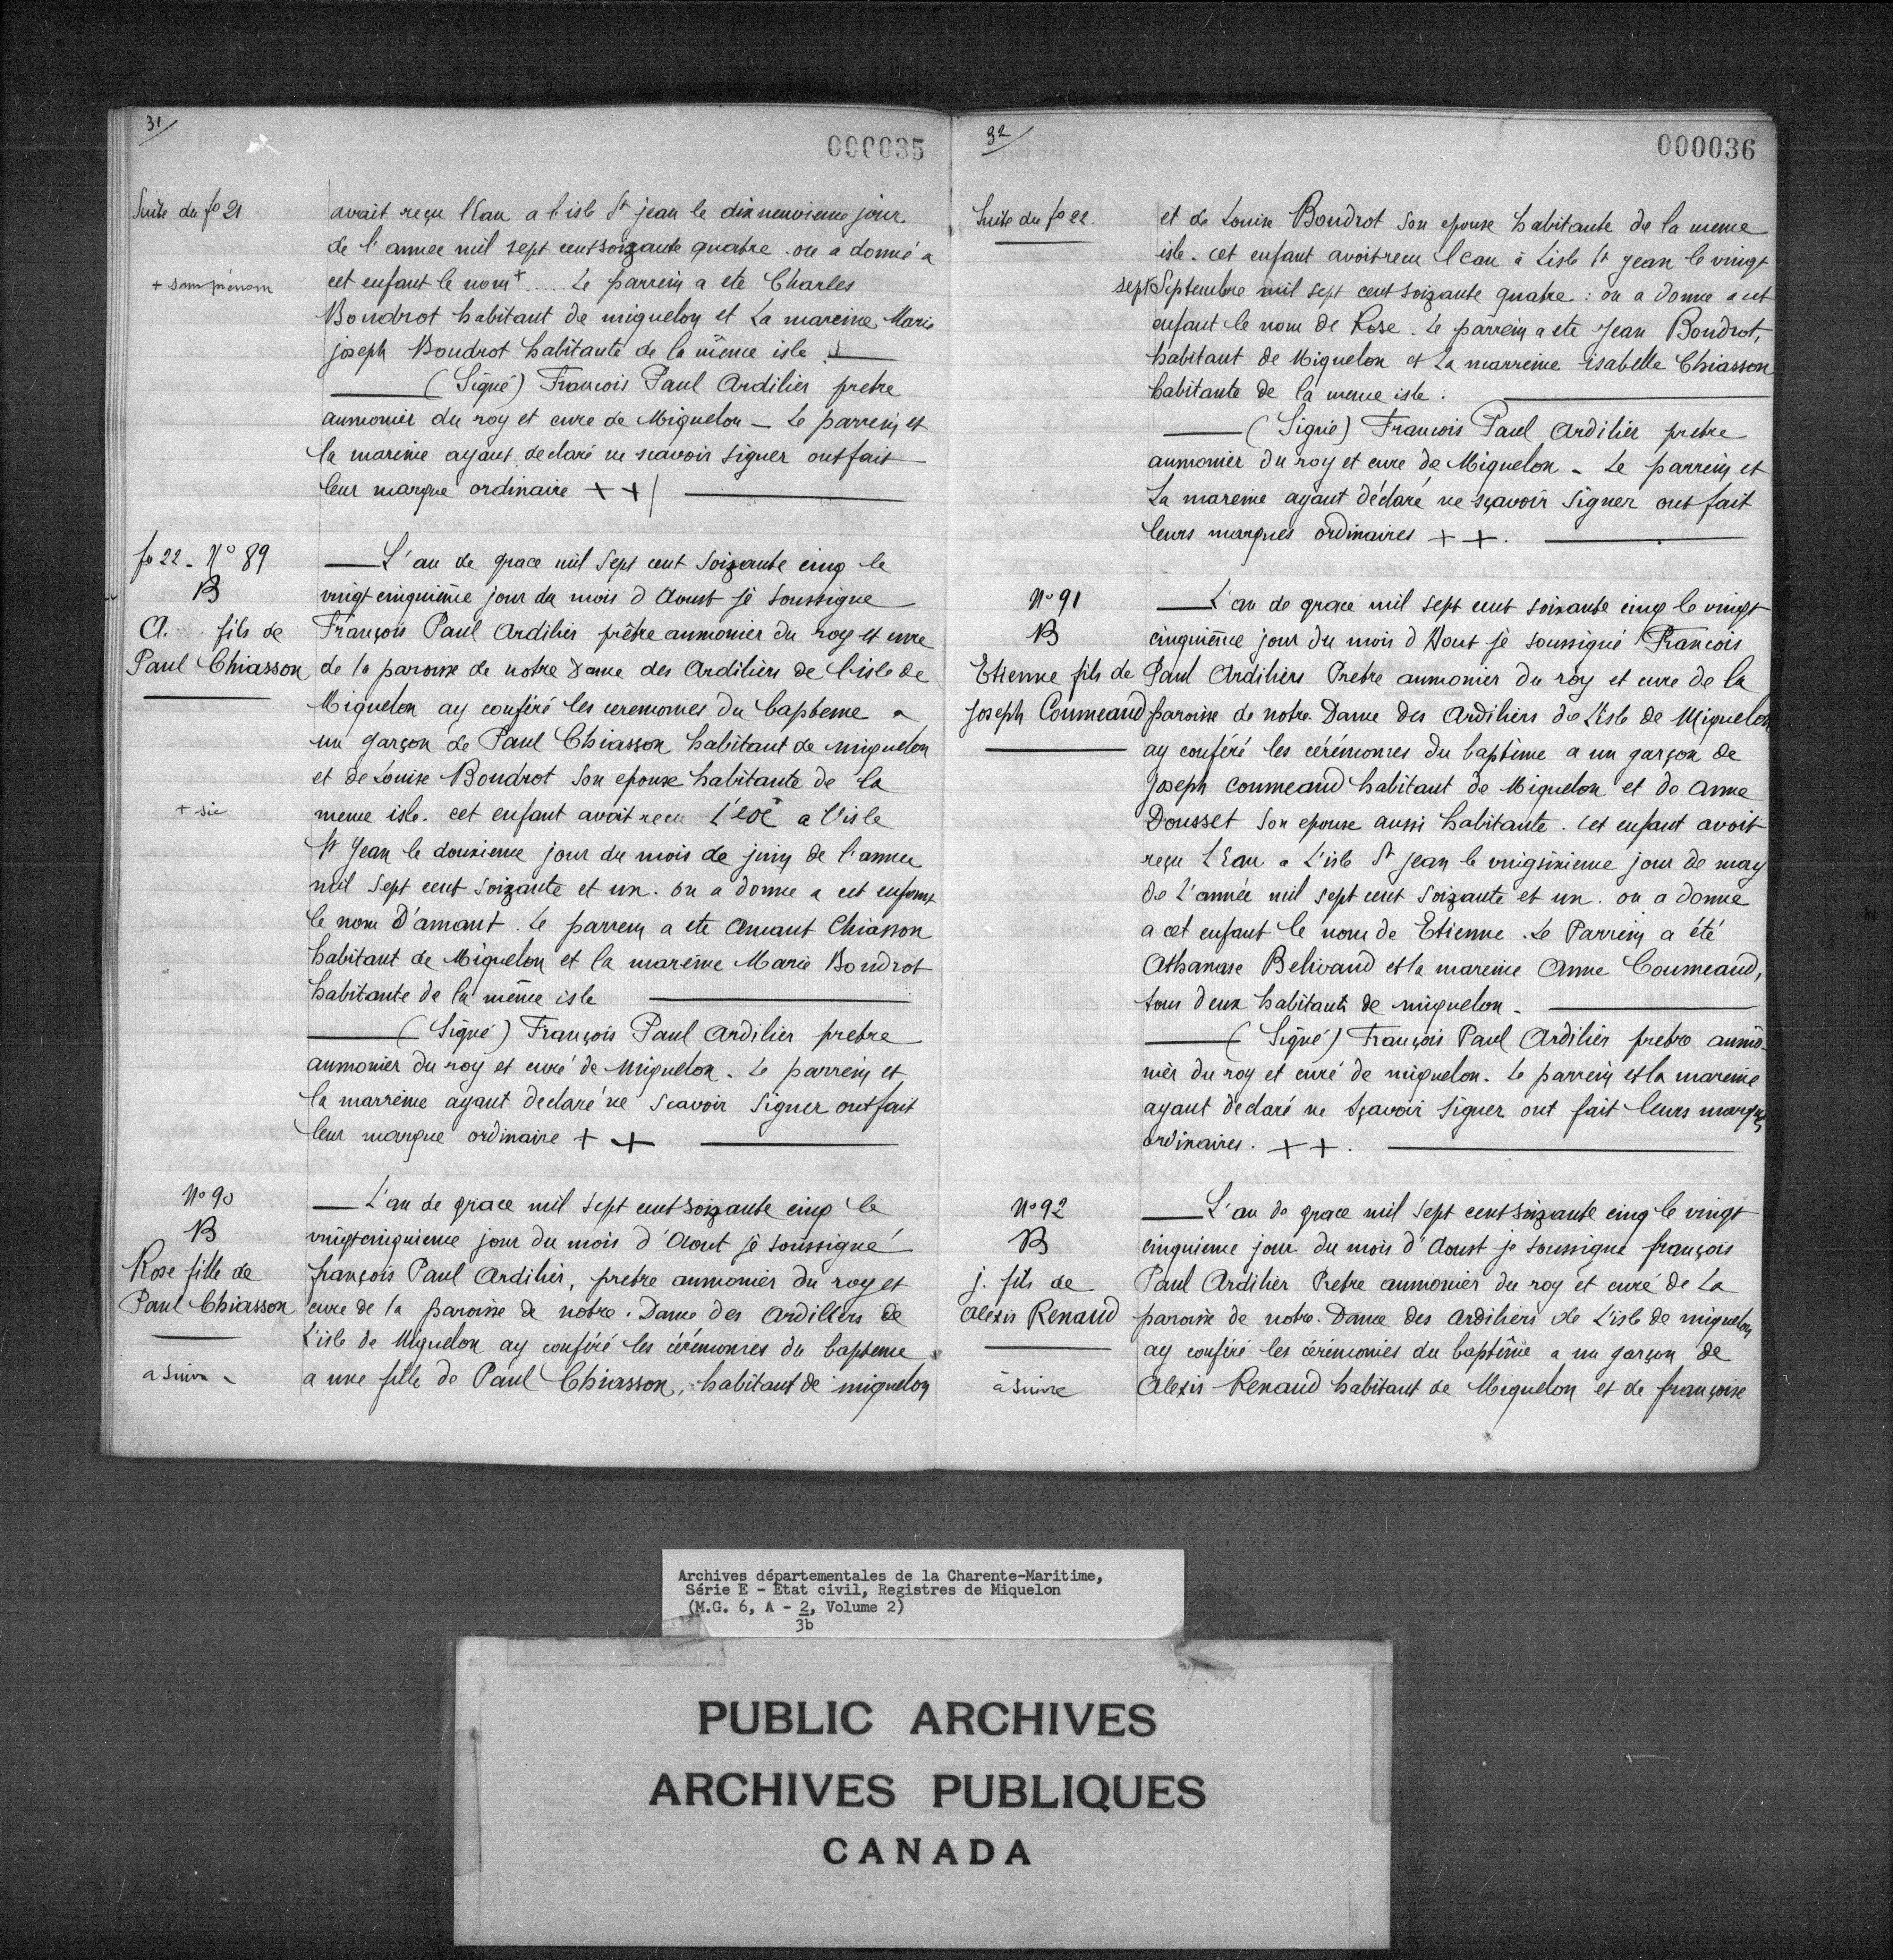 31
000035
Suite du fo 21
avait reçu l'Eau a l'isle St jean le dix neuvieme jour
de l'annee mil sept cent soizante quatre. on a donné a
+ sans prénom
cet enfant le nom + ..... Le parrein a ete Charles
Boudrot habitant de miquelon et La mareine Marie
joseph Boudrot habitante de la même isle.
(Signé) Francois Paul Ardilier pretre
aumonier du roy et cure de Miquelon - Le parrein et
la mareine ayant declaré ne scavoir signer ont fait
leur marque ordinaire + +
fo 22 - No 89
B
A... fils de
Paul Chiasson
L'an de grace mil sept cent soizante cinq le
vingt cinquième jour du mois d Aoust je soussigne
François Paul Ardilier prêtre aumonier du roy et cure
de la paroisse de notre Dame des Ardiliers de l'isle de
Miquelon ay conféré les ceremonies du bapteme a
un garçon de Paul Chiasson habitant de miquelon
et de Louise Boudrot son epouse habitante de la
+ sic
meme isle. cet enfant avoit recu L'eoc + a l'isle
St Jean le douxieme jour du mois de juin de l'annee
mil sept cent soizante et un. on a donne a cet enfant
le nom D'amant. Le parrein a ete Amant Chiasson
habitant de Miquelon et la mareine Marie Boudrot
habitante de la même isle
(Signé) François Paul Ardilier pretre
aumonier du roy et curé de Miquelon. Le parrein et
la marreine ayant declaré ne scavoir signer ont fait
leur marque ordinaire + +
No 90
B
Rose fille de
Paul Chiasson
L'an de grace mil sept cent soizante cinq le
vingt cinquieme jour du mois d'Aout je soussigné
françois Paul Ardilier, pretre aumonier du roy et
cure de la paroisse de notre. Dame des Ardiliers de
L'isle de Miquelon ay conféré les cérémonies du bapteme
a suivre
a une fille de Paul Chiasson, habitant de miquelon
32
000036
Suite du fo 22.
et de Louise Boudrot son epouse habitante de la meme
isle. cet enfant avoit recu l'eau à Lisle St Jean le vingt
sept Septembre mil sept cent soizante quatre : on a donne a cet
enfant le nom de Rose. Le parrein a ete Jean Boudrot,
habitant de Miquelon et La marreine isabelle Chiasson
habitante de la meme isle :
(Signé) Francois Paul Ardilier pretre
aumonier du roy et cure de Miquelon - Le parrein et
La mareine ayant déclaré ne sçavoir signer ont fait
leurs marques ordinaires + + .
No 91
B
Etienne fils de
Joseph Coumeaud
L'an de grace mil sept cent soixante cinq le vingt
cinquième jour du mois d'Aout je soussigné Francois
Paul Ardiliers Pretre aumonier du roy et cure de la
paroisse de notre. Dame des Ardiliers de L'isle de Miquelon
ay conféré les cérémonies du baptème a un garçon de
Joseph coumeaud habitant de Miquelon et de Anne
Dousset son epouse aussi habitante. Cet enfant avoit
reçu L'Eau a L'isle St jean le vingsixieme jour de may
de L'année mil sept cent soizante et un. on a donne
a cet enfant le nom de Etienne. Le Parrein a été
Athanase Belivaud et la mareine Anne Coumeaud,
tous deux habitants de miquelon.
(Signé) François Paul Ardilier pretre aumô-
nier du roy et curé de miquelon. Le parrein et la mareine
ayant declaré ne sçavoir signer ont fait leurs marques
ordinaires. + + .
No 92
B
j. fils de
Alexis Renaud
L'an de grace mil sept cent soizante cinq le vingt
cinquieme jour du mois d'Aoust je soussigne françois
Paul Ardilier Pretre aumonier du roy et curé de La
paroisse de notre. Dame des Ardiliers de L'isle de miquelon
ay conféré les cérémonies du baptême a un garçon de
à suivre
Alexis Renaud habitant de Miquelon et de françoise
Archives départementales de la Charente-Maritime,
Série E - Etat civil, Registres de Miquelon
(M.G. 6, A - 2, Volume 2)
3b
PUBLIC ARCHIVES
ARCHIVES PUBLIQUES
CANADA